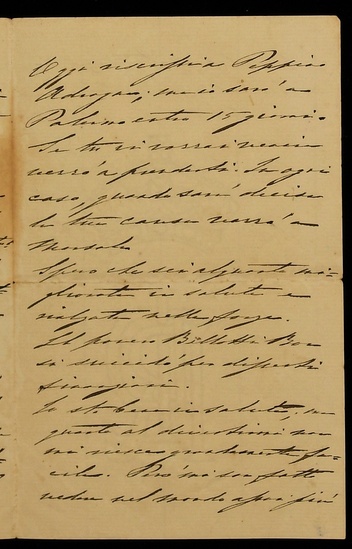 Oggi riscriss a Peppino
; ma io sarò a
Palermo entro 15 giorni.
Se tu vi vorrai venire
verrò a prenderti. In ogni
caso, quando sarà decisa
la tua causa verrò a
Marsala
Spero che sei alquanto mi=
gliorata in salute e
rialzata nelle forze.
Il povero Bon
si suicidò per dispesti
finanziari.
Io sto bene in salute, ma
quanto al divertirmi non
mi riesce gran fa=
cile. Però mi son fatto
vedere nel mondo un pò più